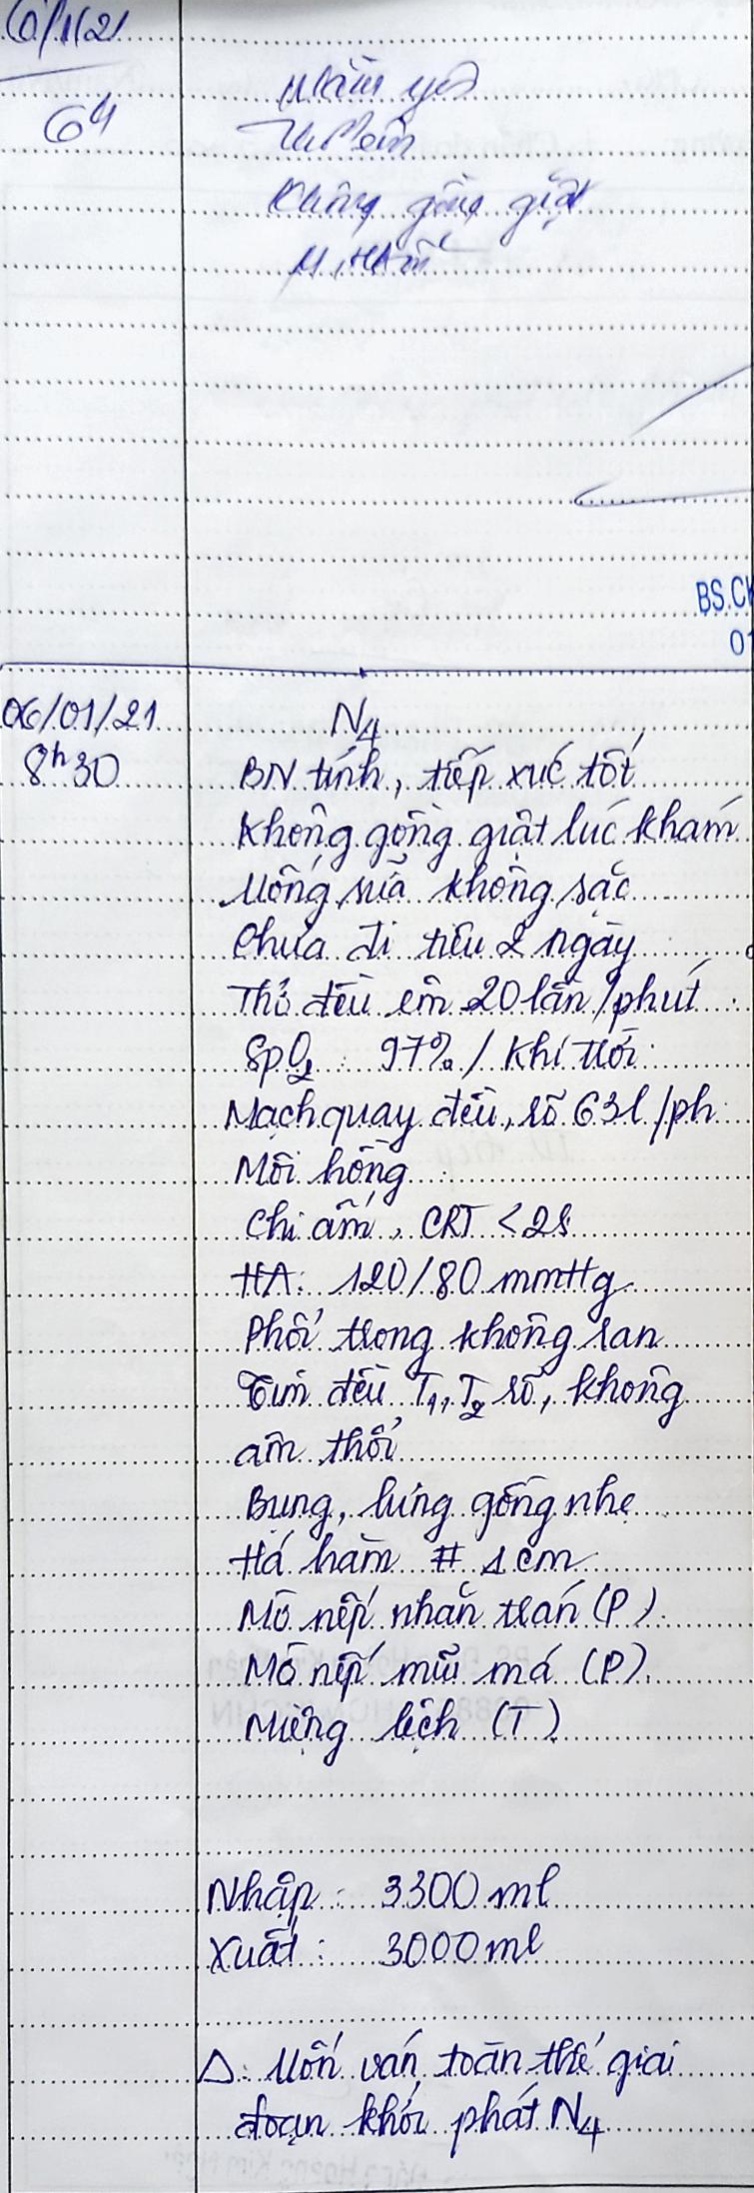 6/1/21
6h
nằm yên
Thở êm
Không gồng giật
M, HA ổn
BS.CK
01
06/01/21
8h30
N4
BN tỉnh, tiếp xúc tốt
Không gồng giật lúc khám
Uống sữa không sặc
Chưa đi tiêu 2 ngày
Thở đều êm 20 lần/phút
SpO2 : 97% / khí trời
Mạch quay đều, rõ 63l/ph
Môi hồng
Chi ấm, CRT < 2s
HA: 120/80 mmHg
Phổi trong không ran
Tim đều T1, T2 rõ, không
âm thổi
Bụng, lưng gồng nhẹ
Há hàm # 1cm
Mờ nếp nhăn trán (P).
Mờ nếp mũi má (P).
Miệng lệch (T)
Nhập : 3300 ml
Xuất : 3000 ml
Δ: Uốn ván toàn thể giai
đoạn khởi phát N4